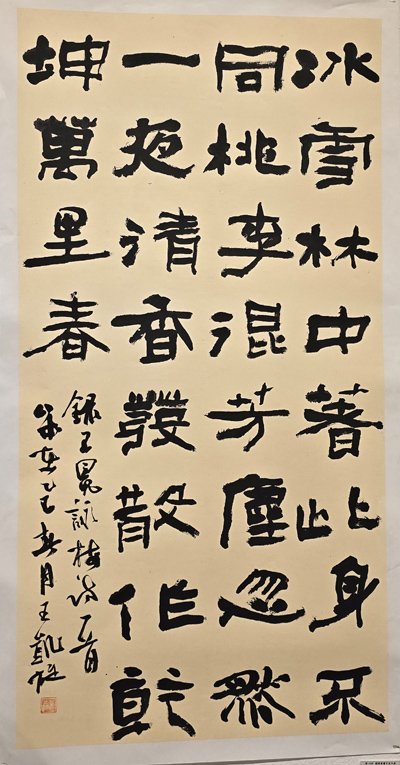 冰雪林中著此身不
同桃李混芳塵忽然
一夜清香發散作乾
坤萬里春
錄王冕詠梅詩一首
乙巳 月王凱